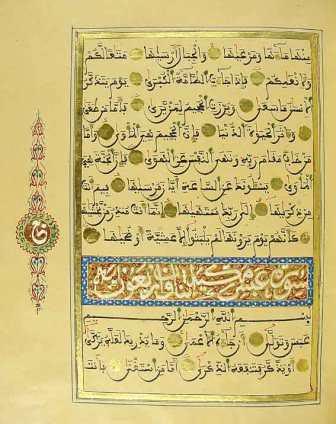 منها ماءها ومرعيها والجبال أرسيها متاعا لكم
ولأنعامكم فإذا جاءت الطامة الكبرى يوم يتذكر
الإنسان ما سعى وبرزت الجحيم لمن يرى فأما من طغى
وآثر الحيوة الدنيا فإن الجحيم هي المأوى وأما
من خاف مقام ربه ونهى النفس عن الهوى فإن الجنة هي
المأوى يسئلونك عن الساعة أيان مرسيها فيم أنت
من ذكريها إلى ربك منتهيها إنما أنت منذر من يخشيها
كأنهم يوم يرونها لم يلبثوا إلا عشية أو ضحيها
سورة عبس مكية
بسم الله الرحمن الرحيم
عبس وتولى أن جاءه الأعمى وما يدريك لعله يزكى
أو يذكر فتنفعه الذكرى أما من استغنى فأنت